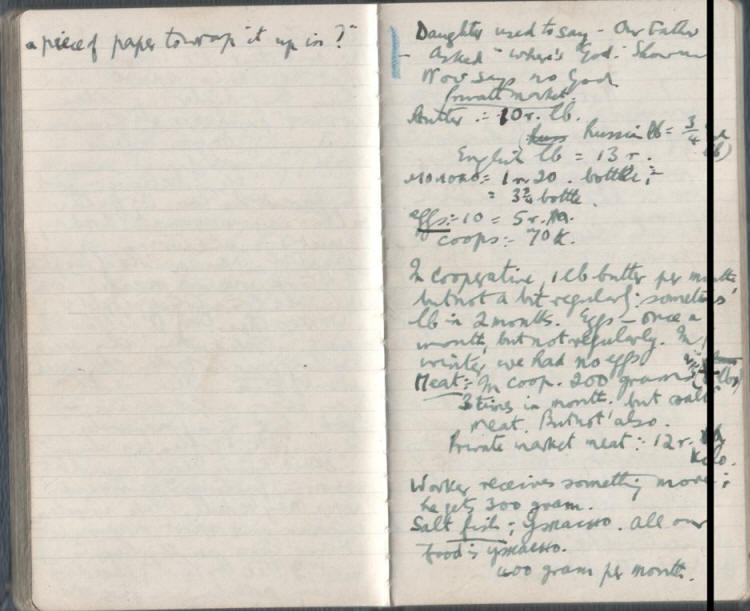 a piece of paper to wrap it up in?"
Daughter used to say - Our Father
Asked "where's God." Show me
Now says no God
Private market.
Butter := 10r. lb.
Russ Russian lb = 3/4
English lb = 13 r.
молоко = 1r 20. bottle;
= 3/4 bottle.
eggs:- 10 = 5r.
coops:- 70K.
In cooperative, 1 lb butter per month
but not a bit regular; sometimes
lb in 2 months. Eggs - once a
month, but not regularly. In
winter we had no eggs
Meat:- In coop. 200 grams
3 times in month. but salt
meat. But not also.
Private market meat:- 12 r.
Kilo.
Worker receives something more;
he gets 300 gram.
Salt fish; ужасно. all our
food is ужасно.
400 gram per month.